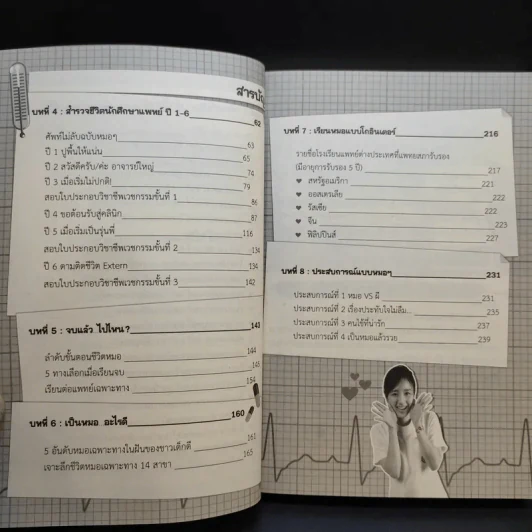 สารบัญ
บทที่ 4 : สำรวจชีวิตนักศึกษาแพทย์ ปี 1-6 62
ศัพท์ไม่ลับฉบับหมอๆ 63
ปี 1 ปูพื้นให้แน่น 65
ปี 2 สวัสดีครับ/ค่ะ อาจารย์ใหญ่ 74
ปี 3 เมื่อเริ่มไม่ปกติ! 79
สอบใบประกอบวิชาชีพเวชกรรมขั้นที่ 1 86
ปี 4 ขอต้อนรับสู่คลินิก 87
ปี 5 เมื่อเริ่มเป็นรุ่นพี่ 116
สอบใบประกอบวิชาชีพเวชกรรมขั้นที่ 2 134
ปี 6 ตามติดชีวิต Extern 134
สอบใบประกอบวิชาชีพเวชกรรมขั้นที่ 3 142
บทที่ 5 : จบแล้ว ไปไหน? 143
ลำดับขั้นตอนชีวิตหมอ 144
5 ทางเลือกเมื่อเรียนจบ 145
เรียนต่อแพทย์เฉพาะทาง 154
บทที่ 6 : เป็นหมอ อะไรดี 160
5 อันดับหมอเฉพาะทางในฝันของชาวเด็กดี 161
เจาะลึกชีวิตหมอเฉพาะทาง 14 สาขา 165
บทที่ 7 : เรียนหมอแบบโกอินเตอร์ 216
รายชื่อโรงเรียนแพทย์ต่างประเทศที่แพทยสภารับรอง
(มีอายุการรับรอง 5 ปี) 217
♥ สหรัฐอเมริกา 221
♥ ออสเตรเลีย 222
♥ รัสเซีย 222
♥ จีน 223
♥ ฟิลิปปินส์ 227
บทที่ 8 : ประสบการณ์แบบหมอๆ 231
ประสบการณ์ที่ 1 หมอ VS ผี 231
ประสบการณ์ที่ 2 เรื่องประทับใจไม่ลืม... 235
ประสบการณ์ที่ 3 คนไข้ที่น่ารัก 237
ประสบการณ์ที่ 4 เป็นหมอแล้วรวย 239